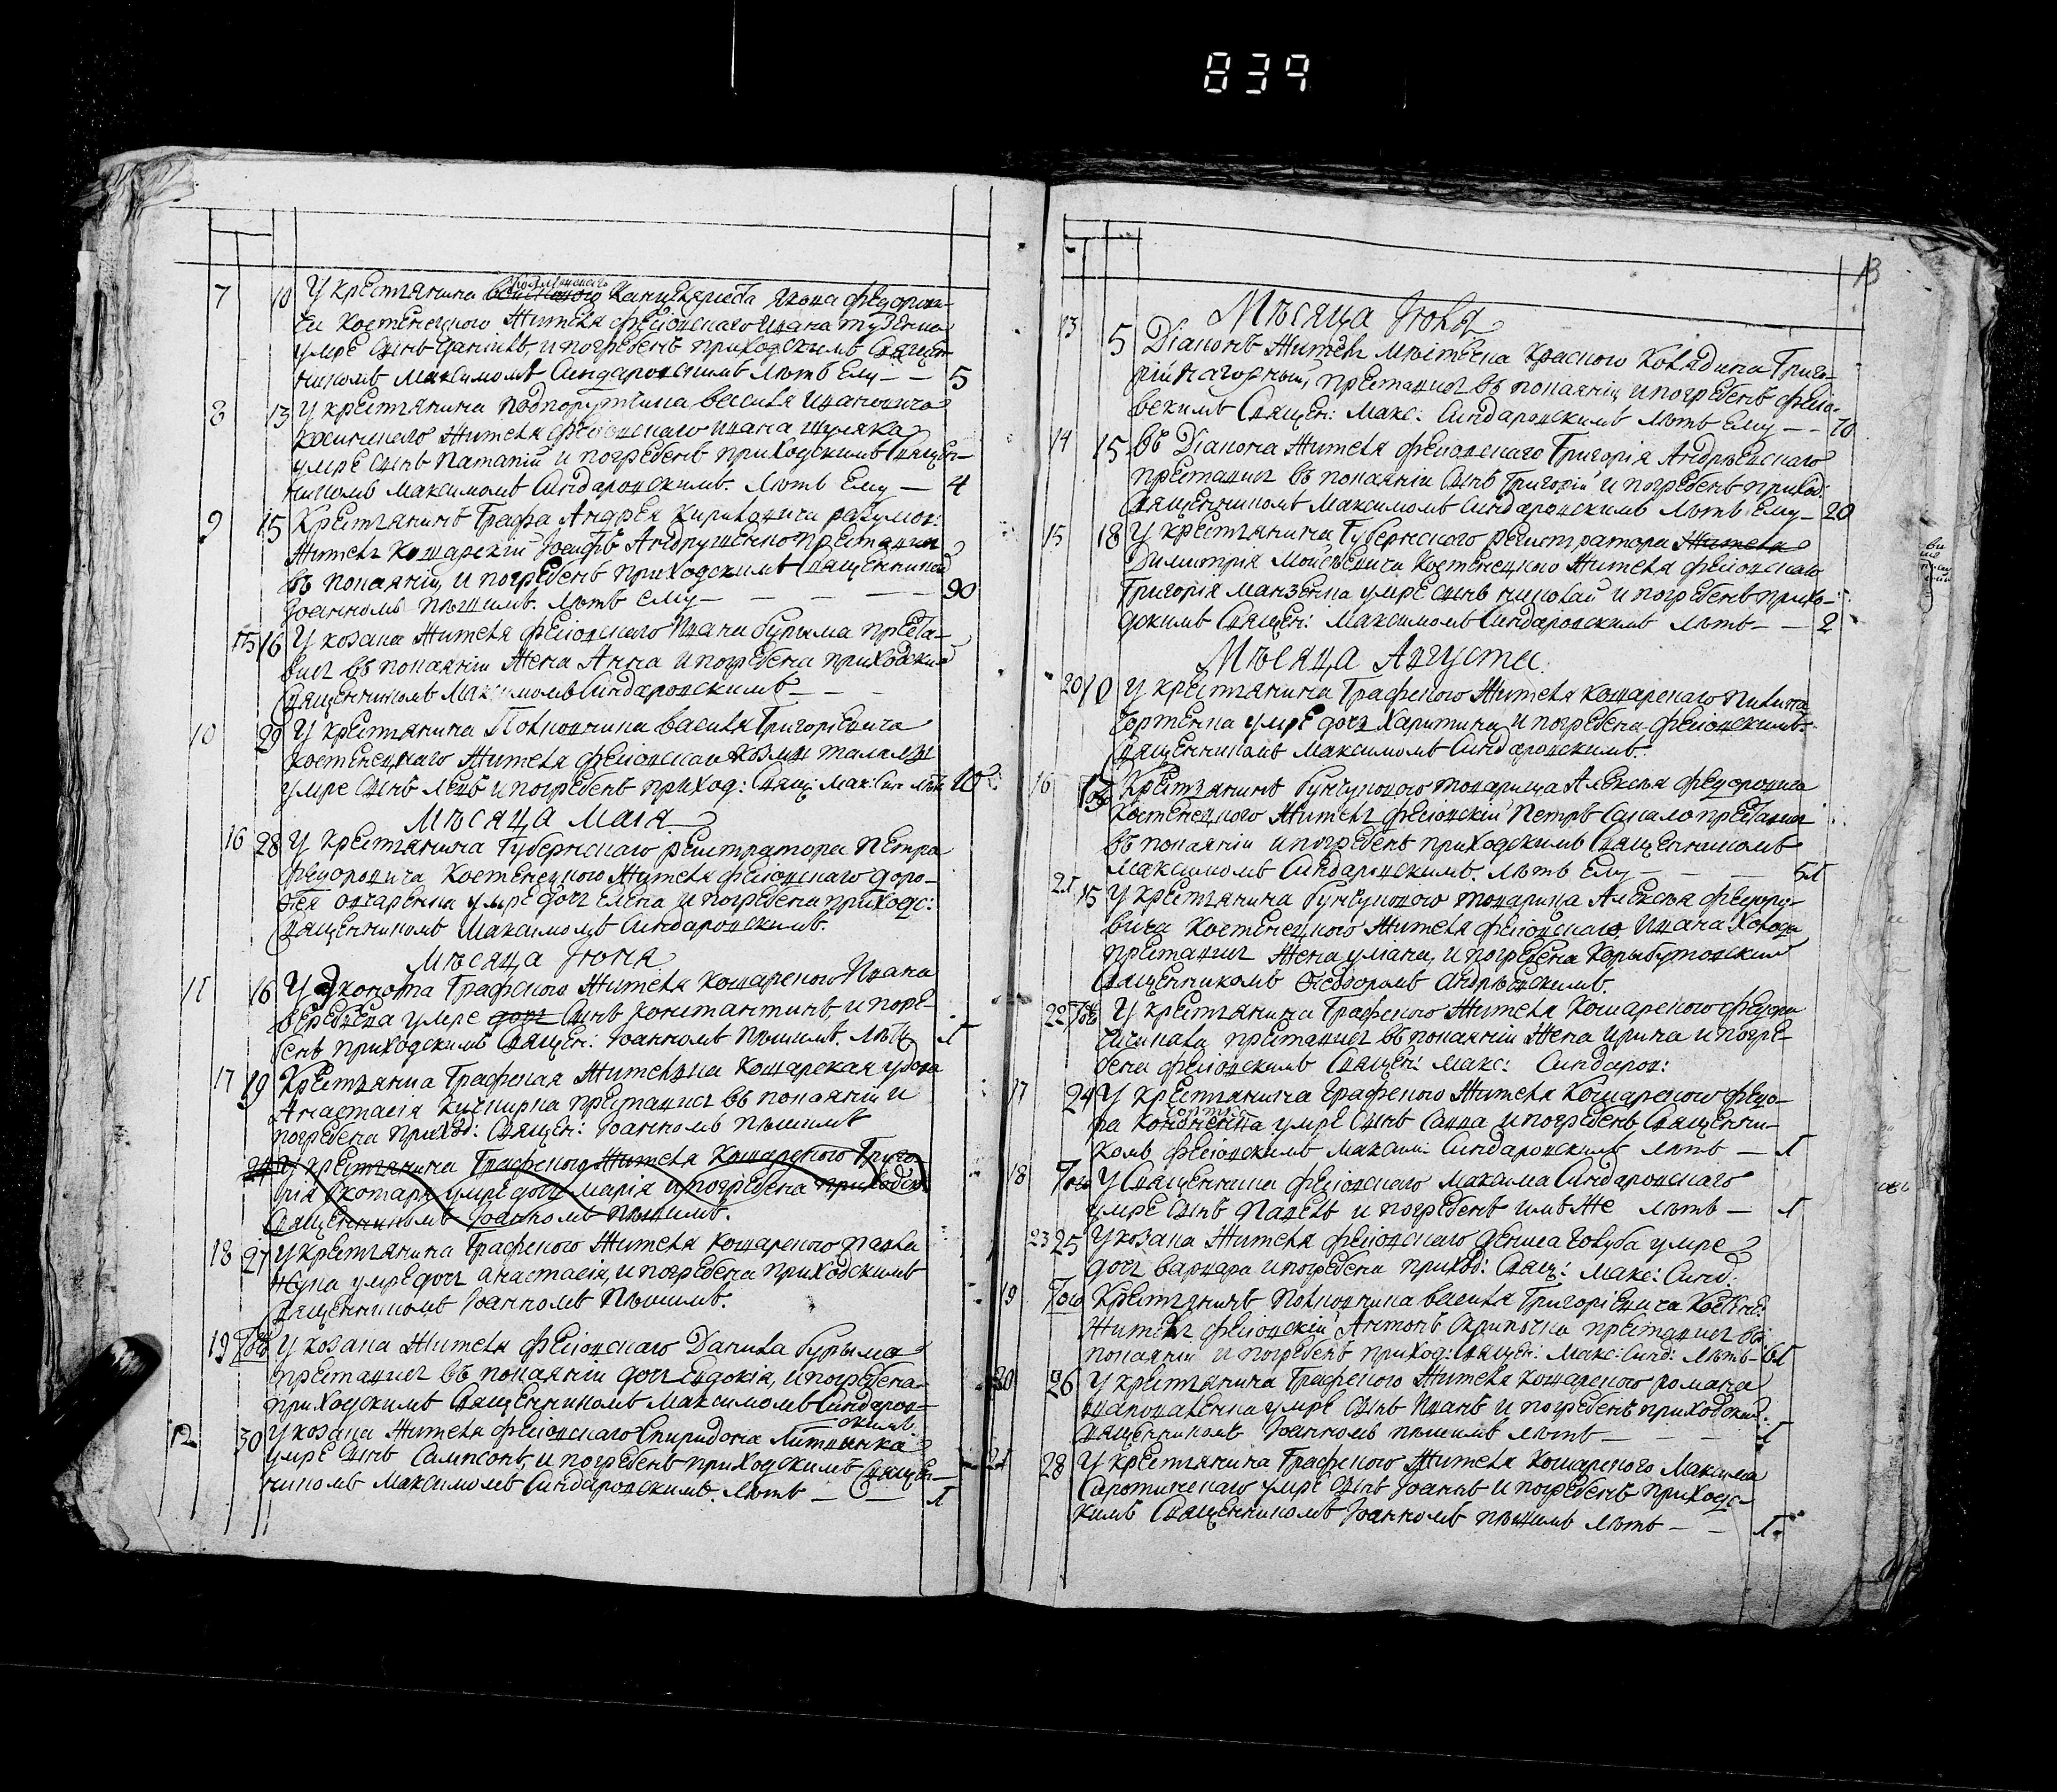 839
7 10 У крестянина войскового канцеляриста Якова Федорови-
ча Костенецкого жителя фесовского Ивана
умре сынъ Даніилъ, и погребенъ приходскимъ Священ-
никомъ Максимомъ Синдаровскимъ лѣтъ ему — — 5
8 13 У крестянина подпорутчика Василія Ивановича
жителя фесовского Ивана Шуляка
умре сынъ Патапій и погребенъ приходскимъ Священ-
никомъ Максимомъ Синдаровскимъ. лѣтъ ему — 4
9 15 Крестянинъ Графа Андрея Кириловича разумов:
житель Кошарскій Іосифъ Андрущенко преставися
въ покаяніи, и погребенъ приходскимъ Священникомъ
Іоанномъ Пышимъ. лѣтъ ему — — — — 90
15 16 У козака жителя фесовского Ивана Бурыма преста-
вися въ покаяніи жена Анна и погребена приходским
Священникомъ Максимомъ Синдаровскимъ — —
10 29 У крестянина Полковника Василія Григоріевича
Костенецкого жителя фесовского
умре сынъ Левъ и погребенъ приход: Свящ: Мак: Син: лѣтъ 10
Мѣсяца Маія
16 28 У крестянина Губернского регистратора Петра
Федоровича Костенецкого жителя фесовского Доро-
фея Овчаренка умре дочь Елена и погребена приходс:
Священникомъ Максимомъ Синдаровскимъ.
Мѣсяца Іюня
11 16 У економа Графского жителя Кошарского Ивана
умре дочь сынъ Константинъ, и погре-
бенъ приходскимъ Священ: Іоанномъ Пышимъ. лѣтъ 1
17 19 Крестянка Графская жителка Кошарская удова
Анастасія преставися въ покаяніи и
погребена приход: Священ: Іоанномъ Пышимъ
24 У крестянина Графского жителя Кошарского Григо-
рія Скотаря умре дочь Марія и погребена приходск:
Священникомъ Іоанномъ Пышимъ.
18 27 У крестянина Графского жителя Кошарского Павла
Жука умре дочь Анастасія, и погребена приходскимъ
Священникомъ Іоанномъ Пышимъ.
19 Тогож У козака жителя фесовского Данила Бурыма
преставися въ покаяніи дочь Евдокія, и погребена
приходскимъ Священникомъ Максимомъ Синдаров-
скимъ.
12 30 У козака жителя фесовского Спиридона Литвинка
умре сынъ Сампсонъ, и погребенъ приходскимъ Священ-
никомъ Максимомъ Синдаровскимъ. лѣтъ — — 1
13
Мѣсяца Іюля
13 5 Діаконъ житель мѣстечка Красного Колядина Григо-
рій Нагорный, преставися въ покаяніи и погребенъ фесо-
вскимъ Священ: Макс: Синдаровскимъ лѣтъ ему — — 70
14 15 въ Діакона жителя фесовского Григорія Андріевского
преставися въ покаяніи сынъ Григорій и погребенъ приход:
Священникомъ Максимомъ Синдаровскимъ лѣтъ ему — 20
15 18 У крестянина Губернского регистратора жителя
Димитрія Мойсѣевича Костенецкого жителя фесовского
Григорія Манзенка умре сынъ Николай и погребенъ прихо-
дскимъ Священ: Максимомъ Синдаровскимъ лѣтъ — — 2
Мѣсяца Августа
20 10 У крестянина Графского жителя Кошарского Никиты
Чортенка умре дочь Харитина, и погребена фесовскимъ
Священникомъ Максимомъ Синдаровскимъ.
16 13 Крестянинъ бунчукового товарища Алексѣя Федоровича
Костенецкого житель фесовскій Петръ Сакало преставися
въ покаяніи и погребенъ приходскимъ Священникомъ
Максимомъ Синдаровскимъ. лѣтъ ему — — — 51
21 15 У крестянина бунчукового товарища Алексѣя Федоро-
вича Костенецкого жителя фесовского Ивана Холода
преставися жена Уліана, и погребена Корыбутовским
Священникомъ Феодоромъ Андріевскимъ.
22 Тогож У крестянина Графского жителя Кошарского Федора
преставися въ покаяніи жена Ирина и погре-
бена фесовскимъ Священ: Макс: Синдаров:
17 24 У крестянина Графского жителя Кошарского Федо-
ра умре сынъ Савва и погребенъ Священни-
комъ фесовскимъ Максим: Синдаровскимъ лѣтъ — 1
18 Тогож У Священника фесовского Максима Синдаровского
умре сынъ Павелъ и погребенъ имъ же лѣтъ — 1
23 25 У козака жителя фесовского Дениса Голуба умре
дочь Варвара и погребена приход: Свящ: Макс: Синд:
19 Тогож Крестянинъ Полковника Василія Григоріевича Костене:
житель фесовскій Антонъ Скрипочка преставися въ
покаяніи и погребенъ приход: Священ: Макс: Синд: лѣтъ — 61
20 26 У крестянина Графского жителя Кошарского Романа
Шаповаленка умре сынъ Иванъ и погребенъ приходским:
Священникомъ Іоанномъ Пышимъ лѣтъ — — — 1
21 28 У крестянина Графского жителя Кошарского Максима
умре сынъ Іоаннъ и погребенъ приходс-
кимъ Священникомъ Іоанномъ Пышимъ лѣтъ — — 1